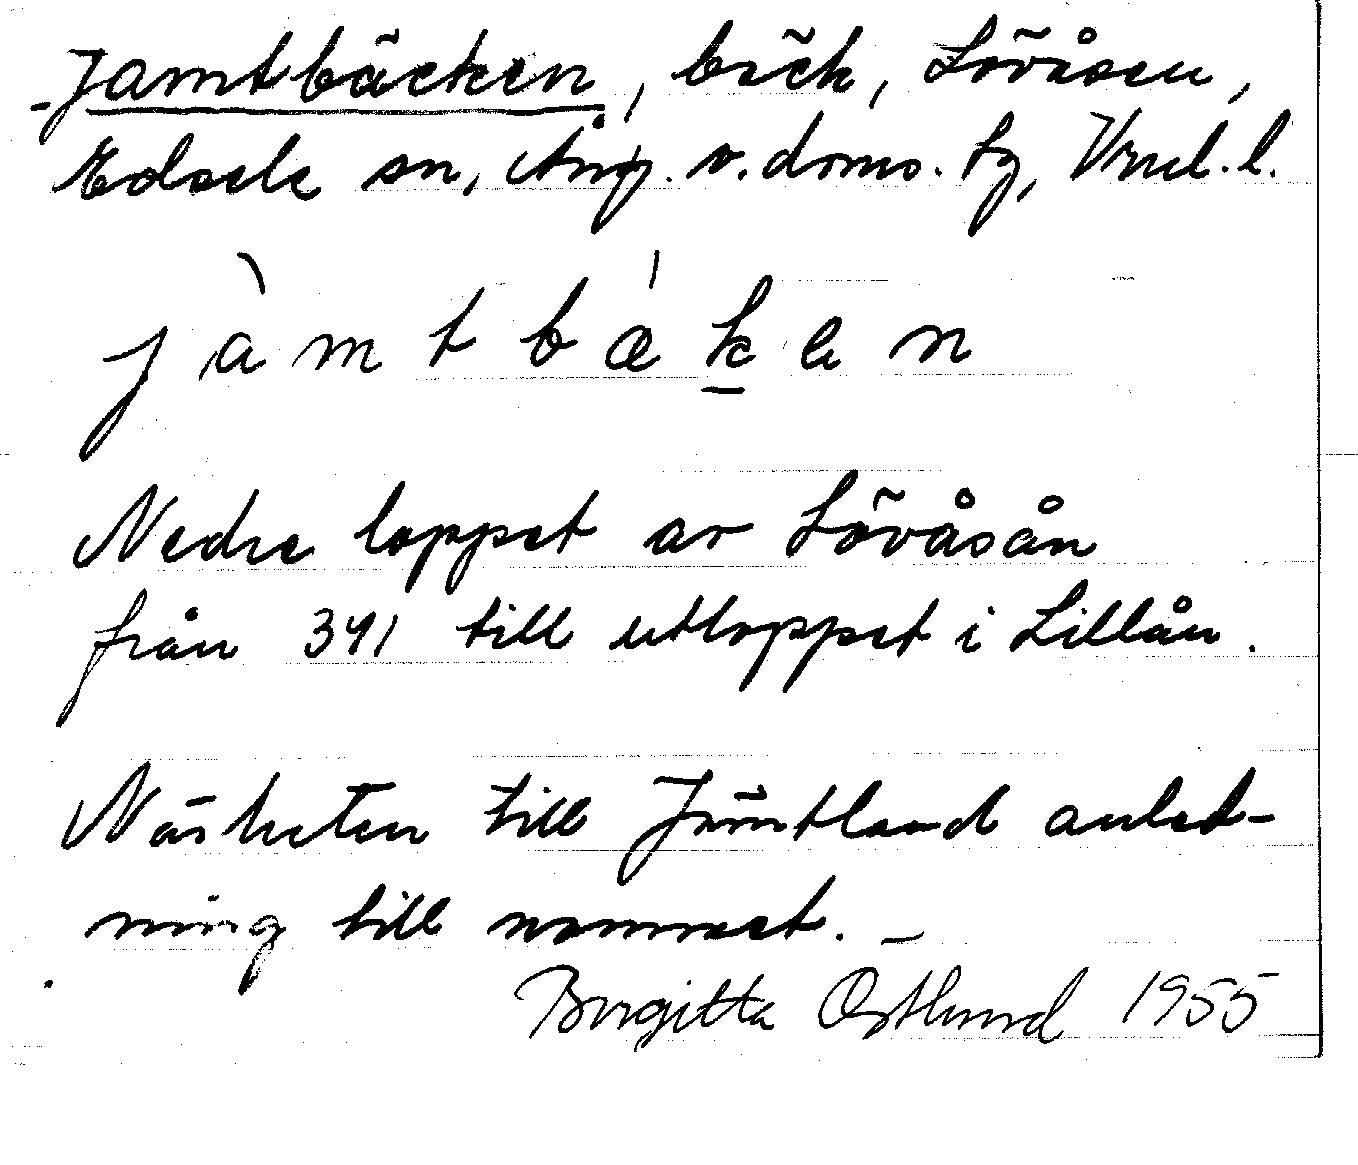 Jamtbäcken, bäck, Lövåsen,
Edsele sn, Ång. v. doms. tg, Vnrl. l.
j à m t b ǽ k e n
Nedre loppet av Lövåsån
från 391 till utloppet i Lillån.
Närheten till Jämtland anled-
ning till namnet. –
Birgitta Östlund 1955